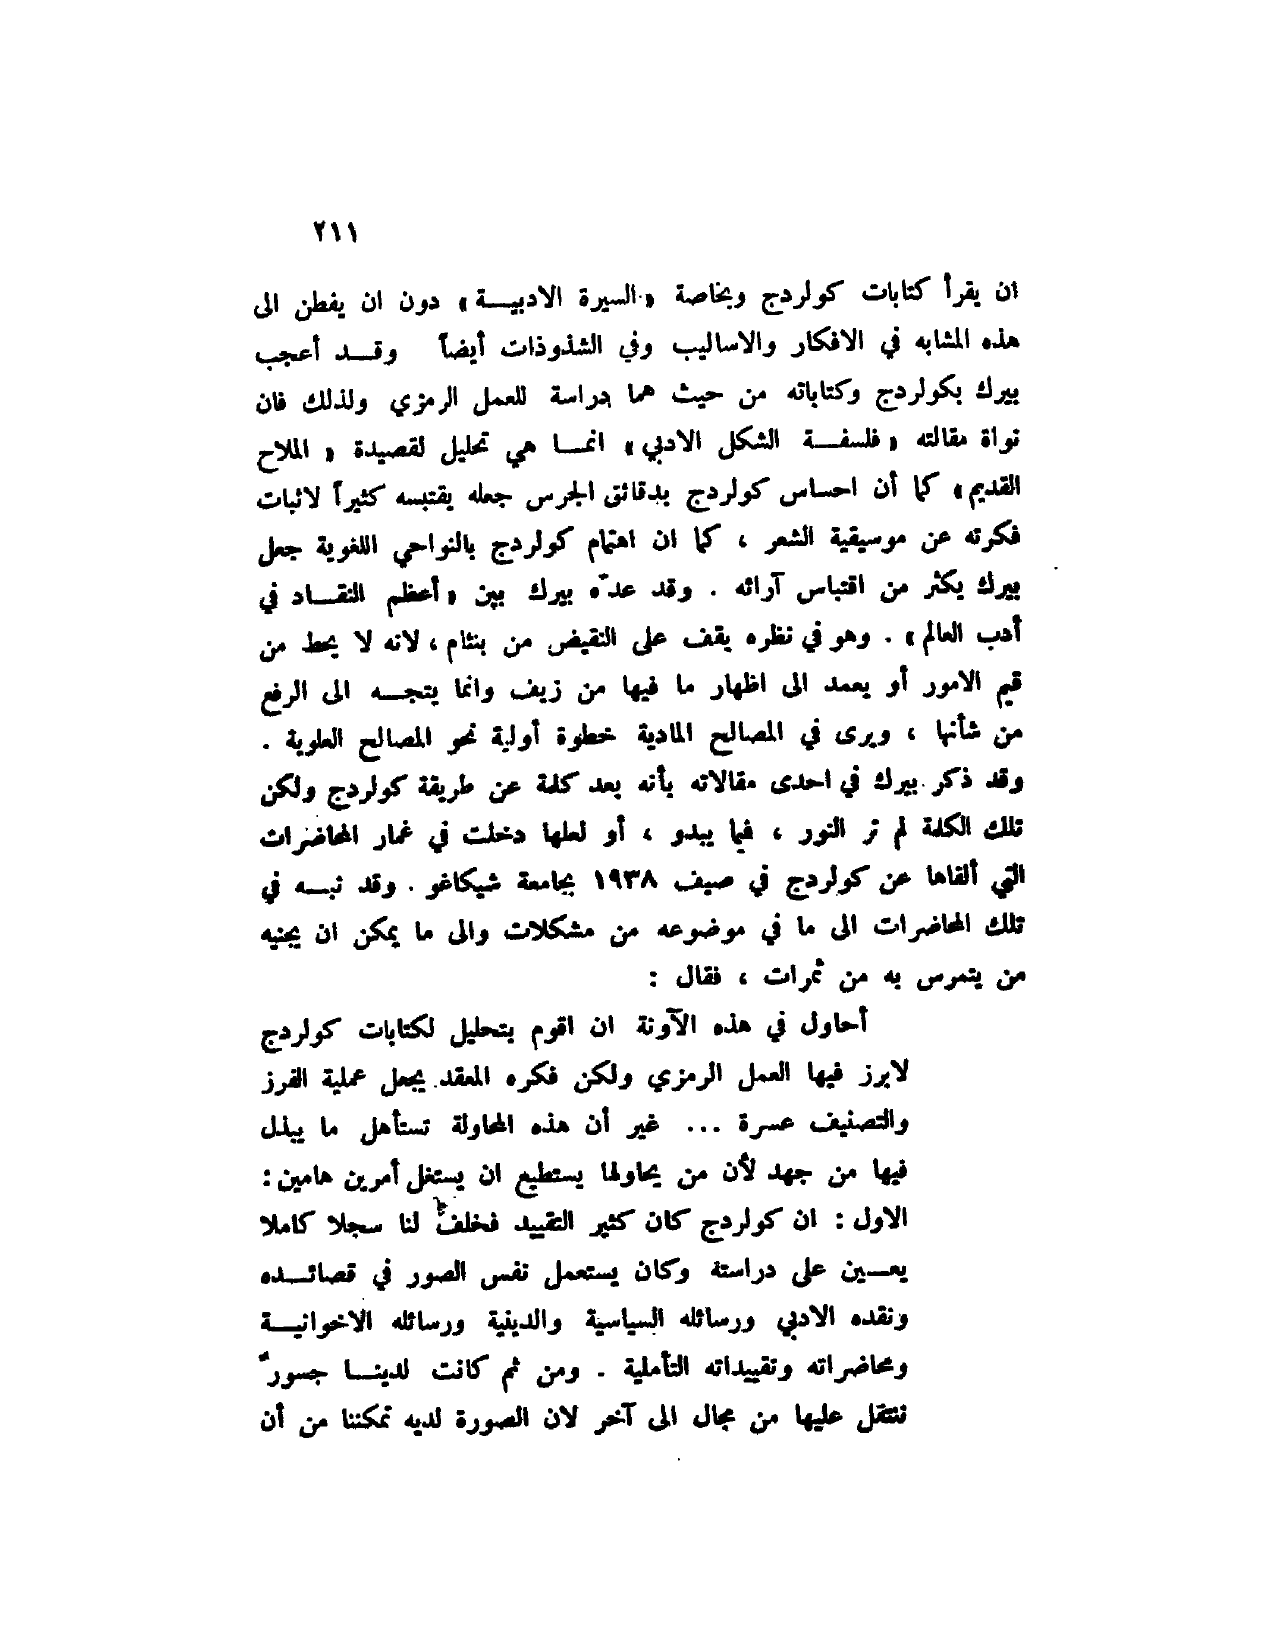 ٢١١
ان يقرأ كتابات كولردج وبخاصة «السيرة الادبيـــة» دون ان يفطن الى
هذه المشابه في الافكار والاساليب وفي الشذوذات أيضاً وقــد أعجب
بيرك بكولردج وكتاباته من حيث هما دراسة للعمل الرمزي ولذلك فان
نواة مقالته «فلسفــة الشكل الادبي» انمــا هي تحليل لقصيدة « الملاح
القديم» كما أن احساس كولردج بدقائق الجرس جعله يقتبسه كثيراً لاثبات
فكرته عن موسيقية الشعر ، كما ان اهتمام كولردج بالنواحي اللغوية جعل
بيرك يكثر من اقتباس آرائه . وقد عدّه بيرك بين «أعظم النقــاد في
أدب العالم» . وهو في نظره يقف على النقيض من بنثام ، لانه لا يحط من
قيم الامور أو يعمد الى اظهار ما فيها من زيف وانما يتجــه الى الرفع
من شأنها ، ويرى في المصالح المادية خطوة أولية نحو المصالح العلوية .
وقد ذكر بيرك في احدى مقالاته بأنه يعد كلمة عن طريقة كولردج ولكن
تلك الكلمة لم تر النور ، فيما يبدو ، أو لعلها دخلت في غمار المحاضرات
التي ألقاها عن كولردج في صيف ١٩٣٨ بجامعة شيكاغو . وقد نبــه في
تلك المحاضرات الى ما في موضوعه من مشكلات والى ما يمكن ان يجنيه
من يتمرس به من ثمرات ، فقال :
أحاول في هذه الآونة ان اقوم بتحليل لكتابات كولردج
لابرز فيها العمل الرمزي ولكن فكره المعقد يجعل عملية الفرز
والتصنيف عسرة ... غير أن هذه المحاولة تستأهل ما يبذل
فيها من جهد لأن من يحاولها يستطيع ان يستغل أمرين هامين :
الاول : ان كولردج كان كثير التقييد فخلف لنا سجلا كاملا
يعــين على دراسته وكان يستعمل نفس الصور في قصائــده
ونقده الادبي ورسائله السياسية والدينية ورسائله الاخوانيــة
ومحاضراته وتقييداته التأملية . ومن ثم كانت لدينــا جسورٌ
ننتقل عليها من مجال الى آخر لان الصورة لديه تمكننا من أن